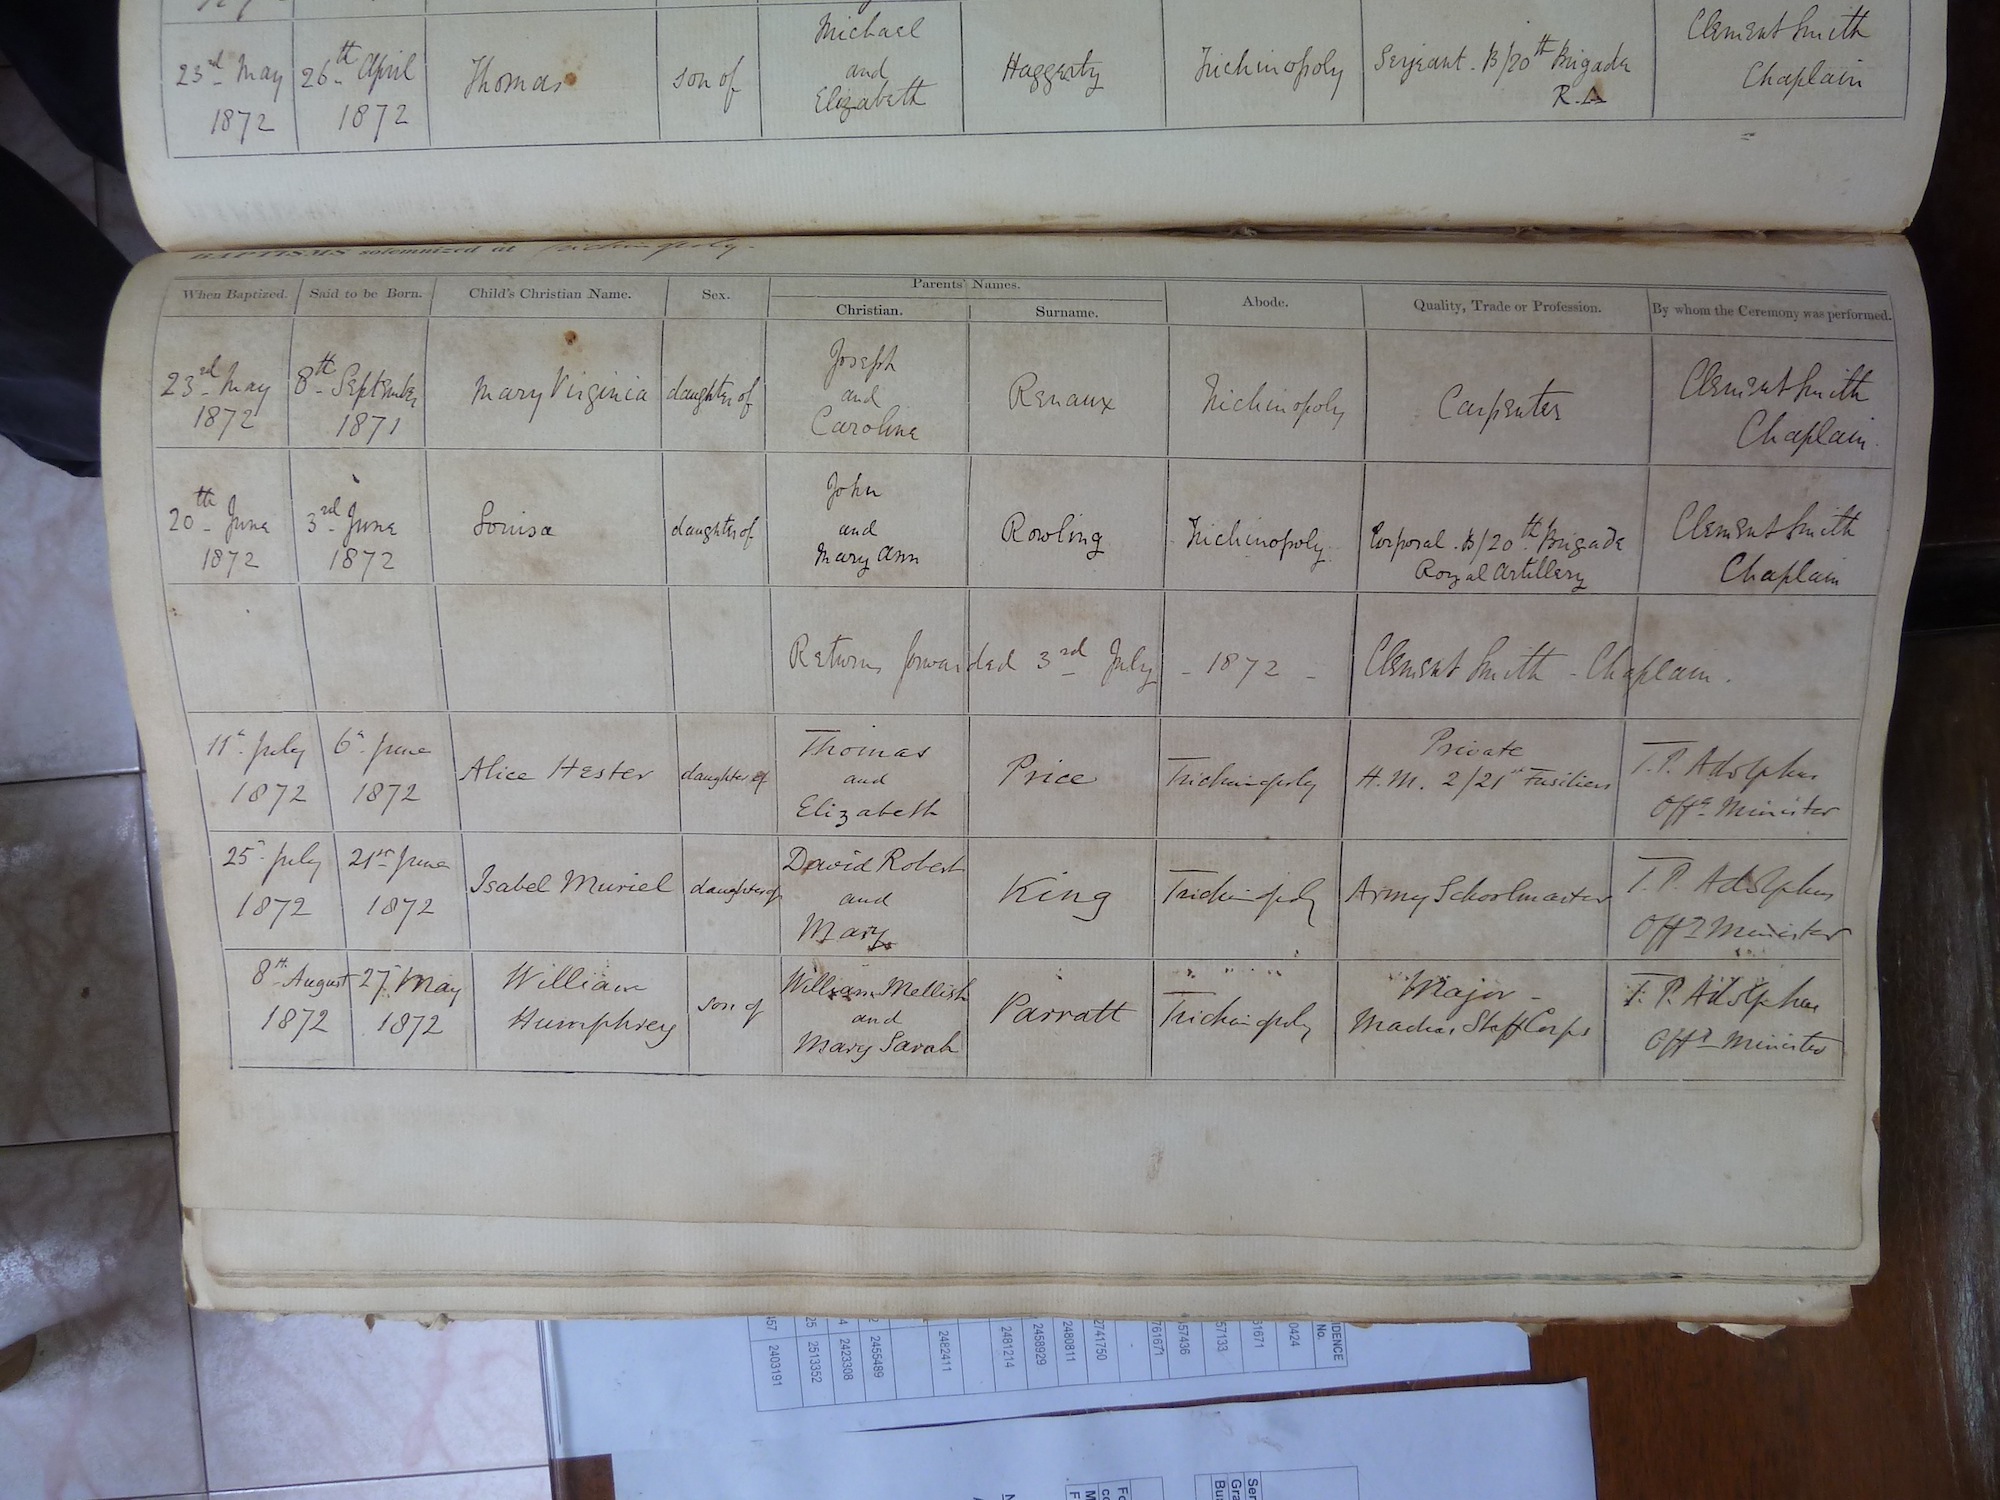 23rd May 1872 26th April 1872 Thomas son of Michael and Elizabeth Haggerty Trichinopoly Serjeant. B/20th Brigade R.A Clement Smith Chaplain
BAPTISMS solemnized at Trichinopoly.
When Baptized. Said to be Born. Child's Christian Name. Sex. Parents' Names. Christian. Surname. Abode. Quality, Trade or Profession. By whom the Ceremony was performed.
23rd May 1872 8th September 1871 Mary Virginia daughter of Joseph and Caroline Renaux Trichinopoly Carpenter Clement Smith Chaplain.
20th June 1872 3rd June 1872 Louisa daughter of John and Mary Ann Rowling Trichinopoly. Corporal. B/20th Brigade Royal Artillery Clement Smith Chaplain
Returns forwarded 3rd July - 1872 - Clement Smith - Chaplain.
11th July 1872 6th June 1872 Alice Hester daughter of Thomas and Elizabeth Price Trichinopoly Private H.M. 2/21st Fusiliers T.P. Adolphus Offg Minister
25 July 1872 21st June 1872 Isabel Muriel daughter of David Robert and Mary King Trichinopoly Army Schoolmaster T.P. Adolphus Offg Minister
8th August 1872 27 May 1872 William Humphrey son of William Mellish and Mary Sarah Parratt Trichinopoly Major - Madras Staff Corps T.P. Adolphus Offg Minister
IDENCE No.
0424
61671
57133
457436
761671
2741750
2480811
2458929
2481214
2482411
2455489
2423308
2513352
2403191